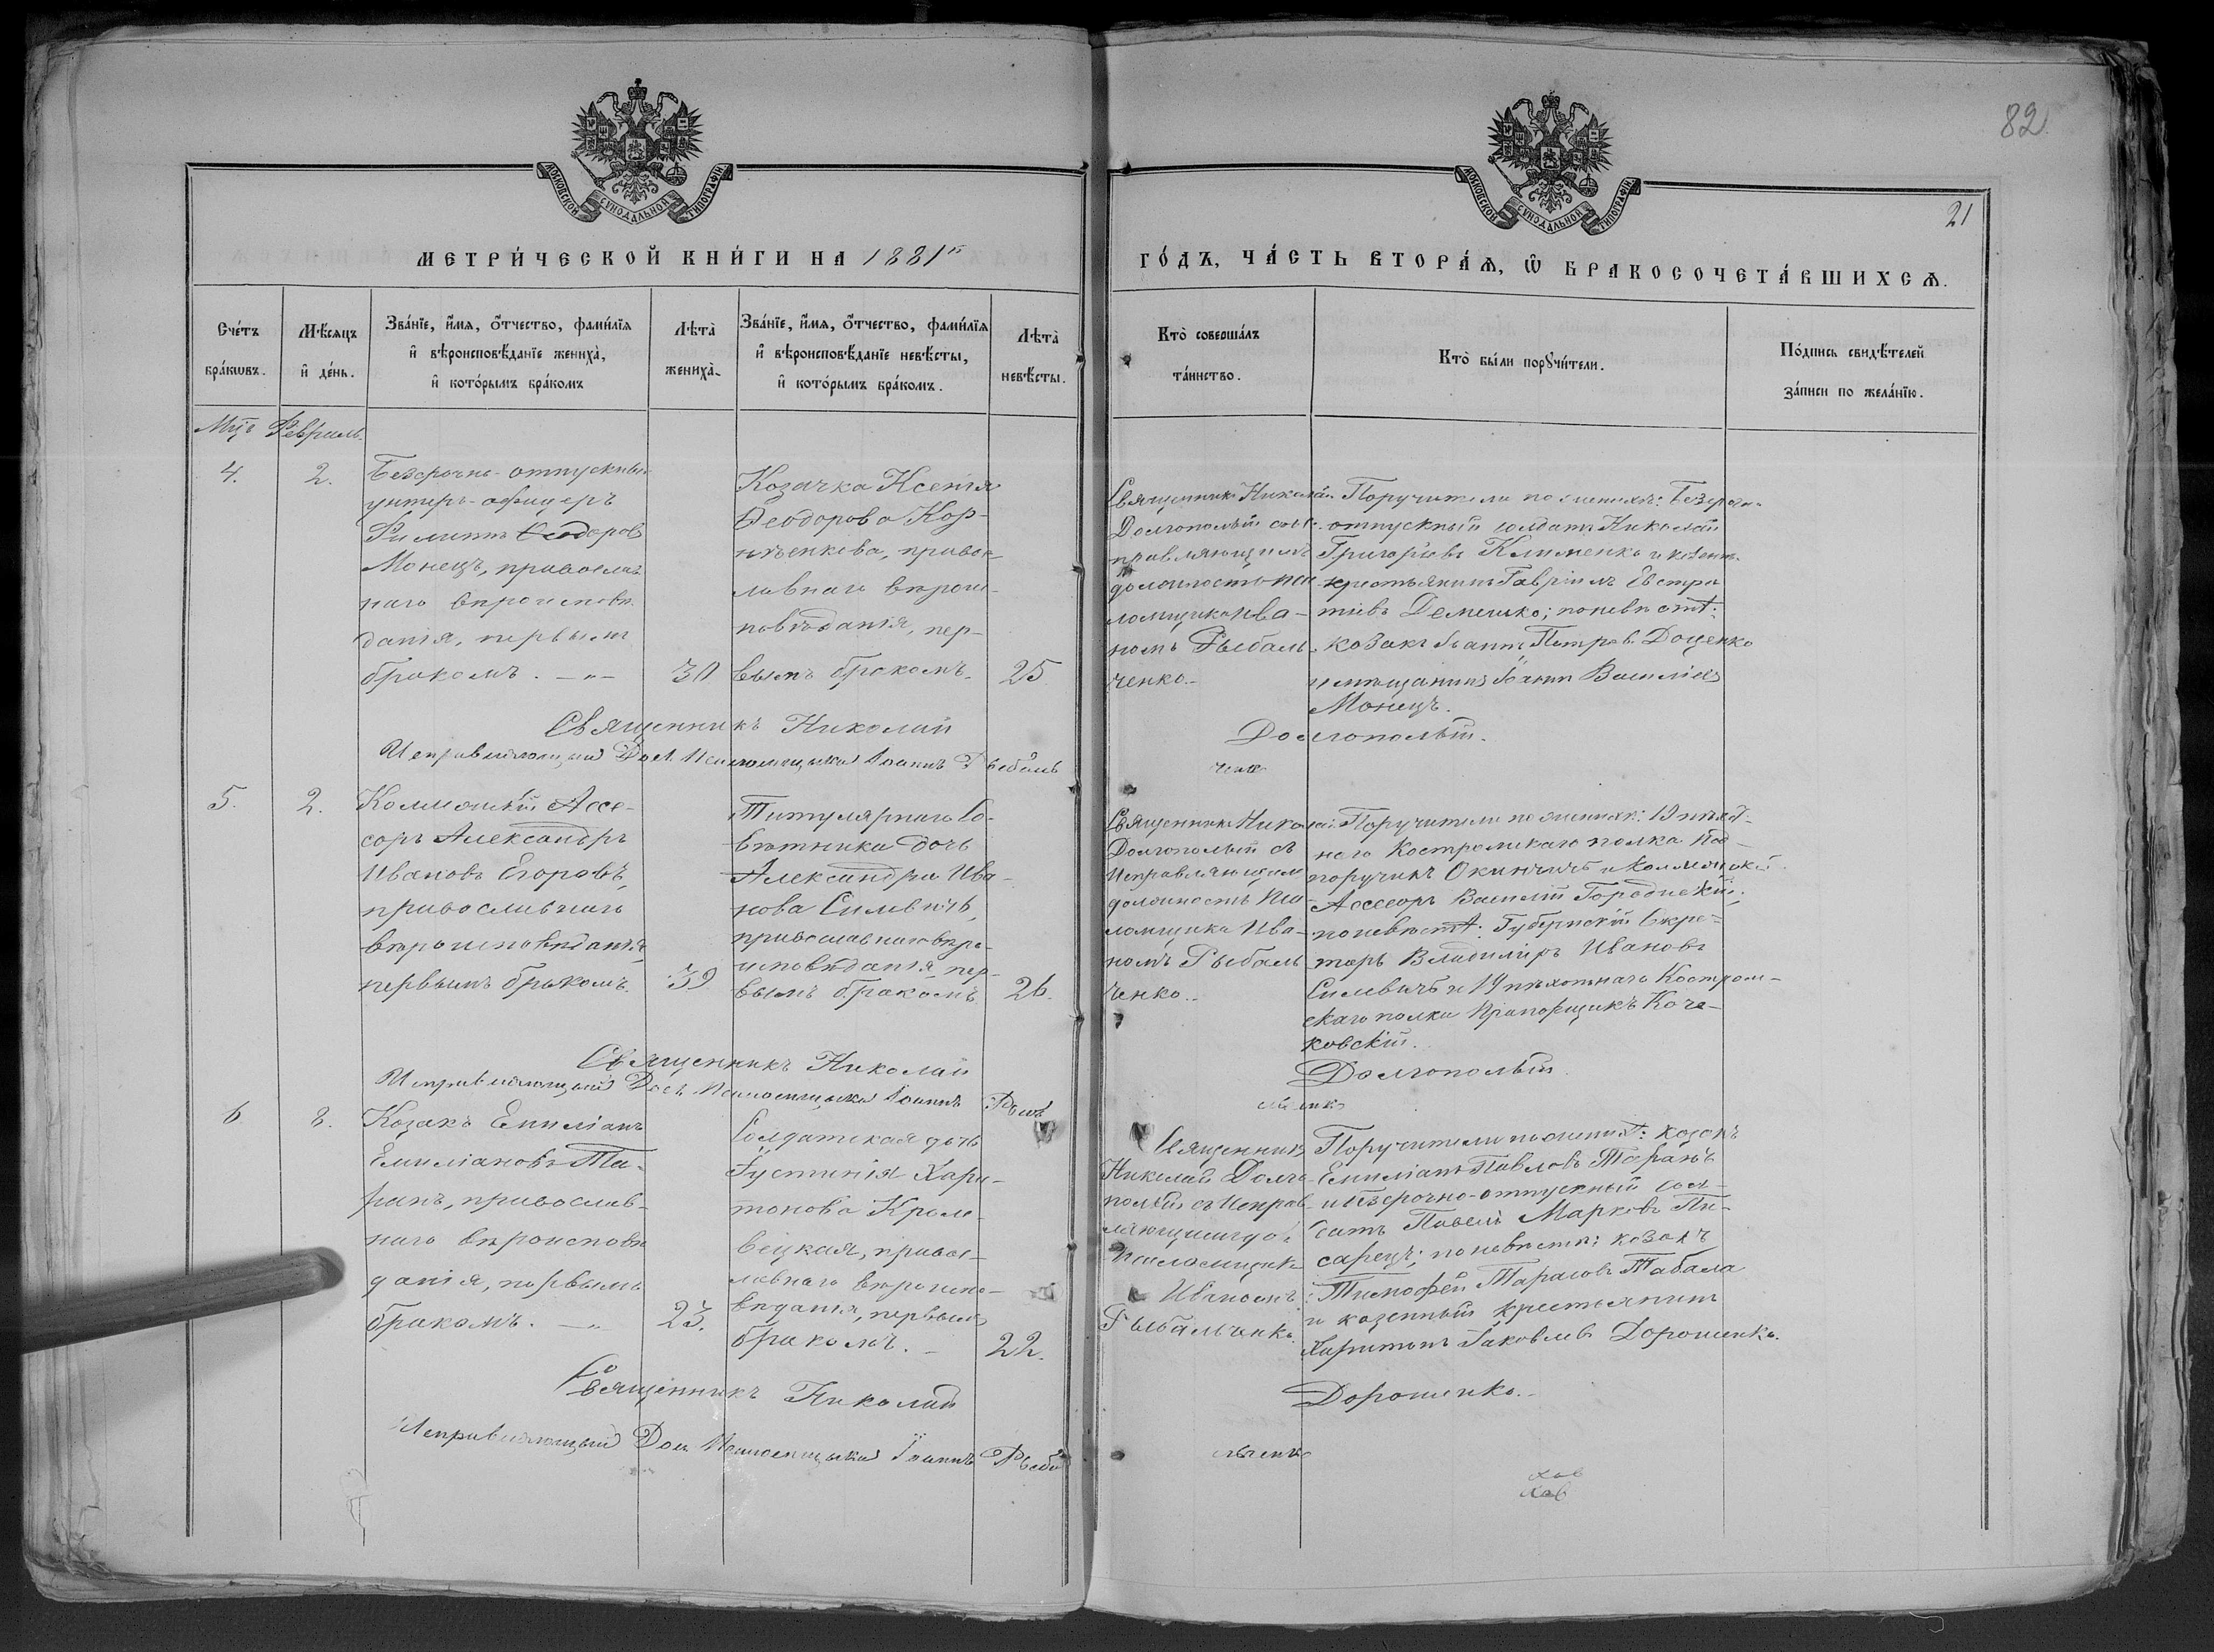 82
21
МОСКОВСКОЙ СѴНОДАЛЬНОЙ ТИПОГРАФІИ
МОСКОВСКОЙ СѴНОДАЛЬНОЙ ТИПОГРАФІИ
МЕТРИ́ЧЕСКОЙ КНИ́ГИ НА 1881й
ГО́ДЪ, ЧА́СТЬ ВТОРА́Ѧ, Ѿ БРАКОСОЧЕТА́ВШИХСѦ.
Сче́тъ
бра́кѡвъ.
Мѣ́сяцъ
и҆ де́нь.
Зва́нїе, и҆́мѧ, ѻ҆́тчество, фами́лїѧ
и҆ вѣроисповѣ́данїе жениха̀,
и҆ кото́рымъ бра́комъ
Лѣта̀
жениха̀.
Зва́нїе, и҆́мѧ, ѻ҆́тчество, фами́лїѧ
и҆ вѣроисповѣ́данїе невѣ́сты,
и҆ кото́рымъ бра́комъ.
Лѣта̀
невѣ́сты.
Кто̀ соверша́лъ
та́инство.
Кто̀ бы́ли порꙋчи́тели.
По́дпись свидѣ́телей
за́писи по жела́нїю.
Мц̃ъ Февраль.
4.
2.
Безсрочно-отпускный
унтеръ-офицеръ
Филиппъ Ѳеодоровъ
Монецъ, православ
наго вѣроисповѣ
данія, первымъ
бракомъ. —„—
30
Козачка Ксенія
Ѳеодорова Кор-
нѣенкова, правос
лавнаго вѣроис-
повѣданія, пер-
вымъ бракомъ.
25
Священникъ Николай
Долгополый съ Ис-
правляющимъ
должность Пса
ломщика Ива-
номъ Рыбаль-
ченко.-
Поручители по женихѣ: Безсрочно-
отпускный солдатъ Николай
Григорьевъ Клименко и казен.
крестьянинъ Гавріилъ Евстра
тіевъ Демешко; по невѣстѣ:
козакъ Іоаннъ Петровъ Доценко
и мѣщанинъ Іоаннъ Василіевъ
Монецъ.
Священникъ Николай Долгополый.
Исправляющій Дол. Псаломщика Іоаннъ Рыбаль
ченко
5.
2.
Коллежскій Ассе-
соръ Александръ
Ивановъ Егоровъ,
православнаго
вѣроисповѣданія,
первымъ бракомъ.
39
Титулярнаго Со-
вѣтника дочь
Александра Ива-
нова Силевичъ,
православнаго вѣро-
исповѣданія, пер-
вымъ бракомъ
26.
Священникъ Николай
Долгополый съ
Исправляющимъ
должность Пса-
ломщика Ива-
номъ Рыбаль
ченко.-
Поручители по женихѣ: 19 пѣхот-
наго Костромскаго полка Под-
поручикъ Окинчичъ и Коллежскій
Ассесоръ Василій Городнскій;
по невѣстѣ: Губернскій Секре-
тарь Владиміръ Ивановъ
Силевичъ и 19 пѣхотнаго Костром-
скаго полка Прапорщикъ Коче-
ковскій.
Священникъ Николай Долгополый
Исправляющій Дол. Псаломщика Іоаннъ Рыба
льченко
6
8.
Козакъ Емиліанъ
Емиліановъ Та-
ранъ, православ-
наго вѣроисповѣ
данія, первымъ
бракомъ. —„
23.
Солдатская дочь
Іустинія Хари-
тонова Кроле-
вецкая, правос-
лавнаго вѣроиспо-
вѣданія, первымъ
бракомъ. -
22.
Священникъ
Николай Долго-
полый съ Исправ
ляющимъ дол
Псаломщика
Иваномъ
Рыбальченко.
Поручители по женихѣ: козакъ
Емиліанъ Павловъ Таранъ
и безсрочно-отпускный сол-
датъ Павелъ Марковъ Пи-
сарецъ; по невѣстѣ: козакъ
Тимофей Тарасовъ Табала
и казенный крестьянинъ
Харитонъ Іаковлевъ Дорошенко.
Священникъ Николай Дорошенко.-
Исправляющій Дол. Псаломщика Іоаннъ Рыба
льченко